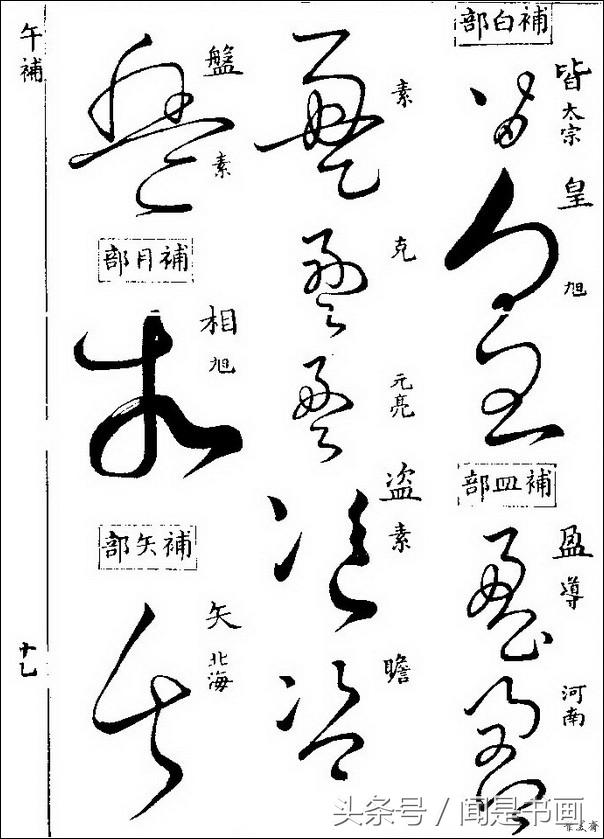 補白部
皆 太宗
皇 旭
補皿部
盈 導
河南
素
克
元亮
盗 素
瞻
盤 素
補目部
相 旭
補矢部
矢 北海
午補
十七
头条号 / 闻是书画